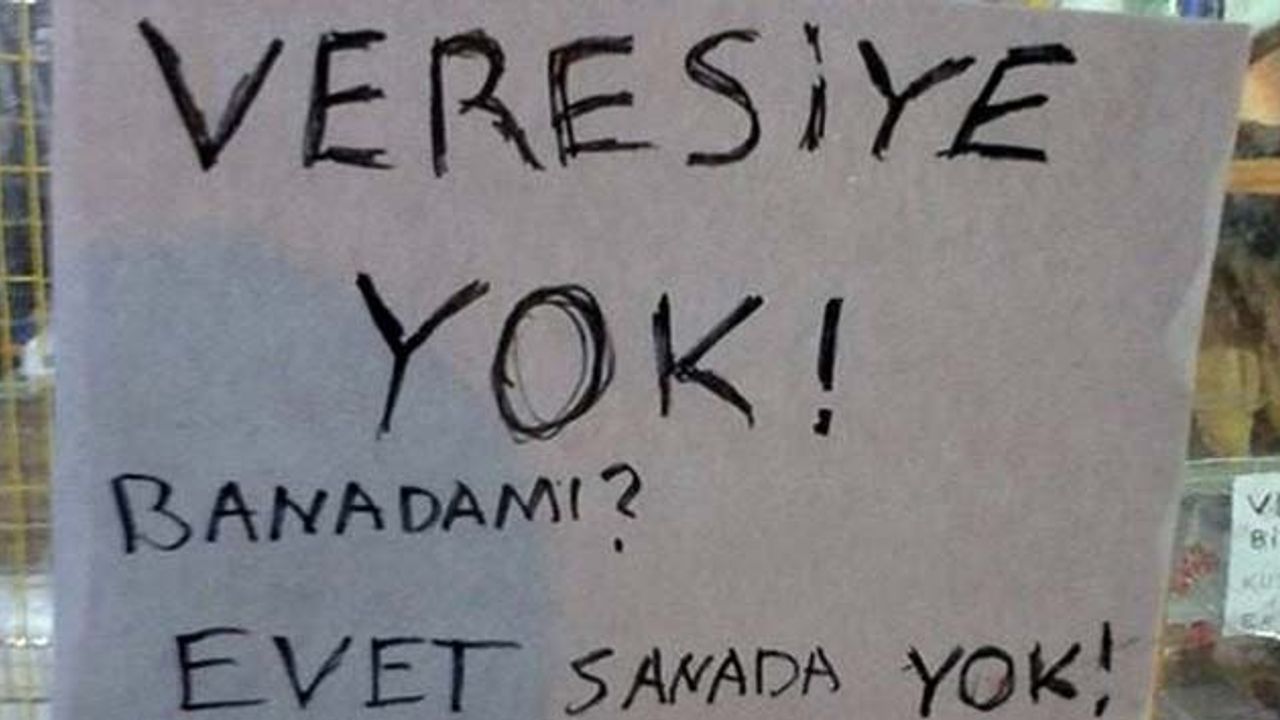 VERESİYE
YOK!
BANADAMI?
EVET SANADA YOK!